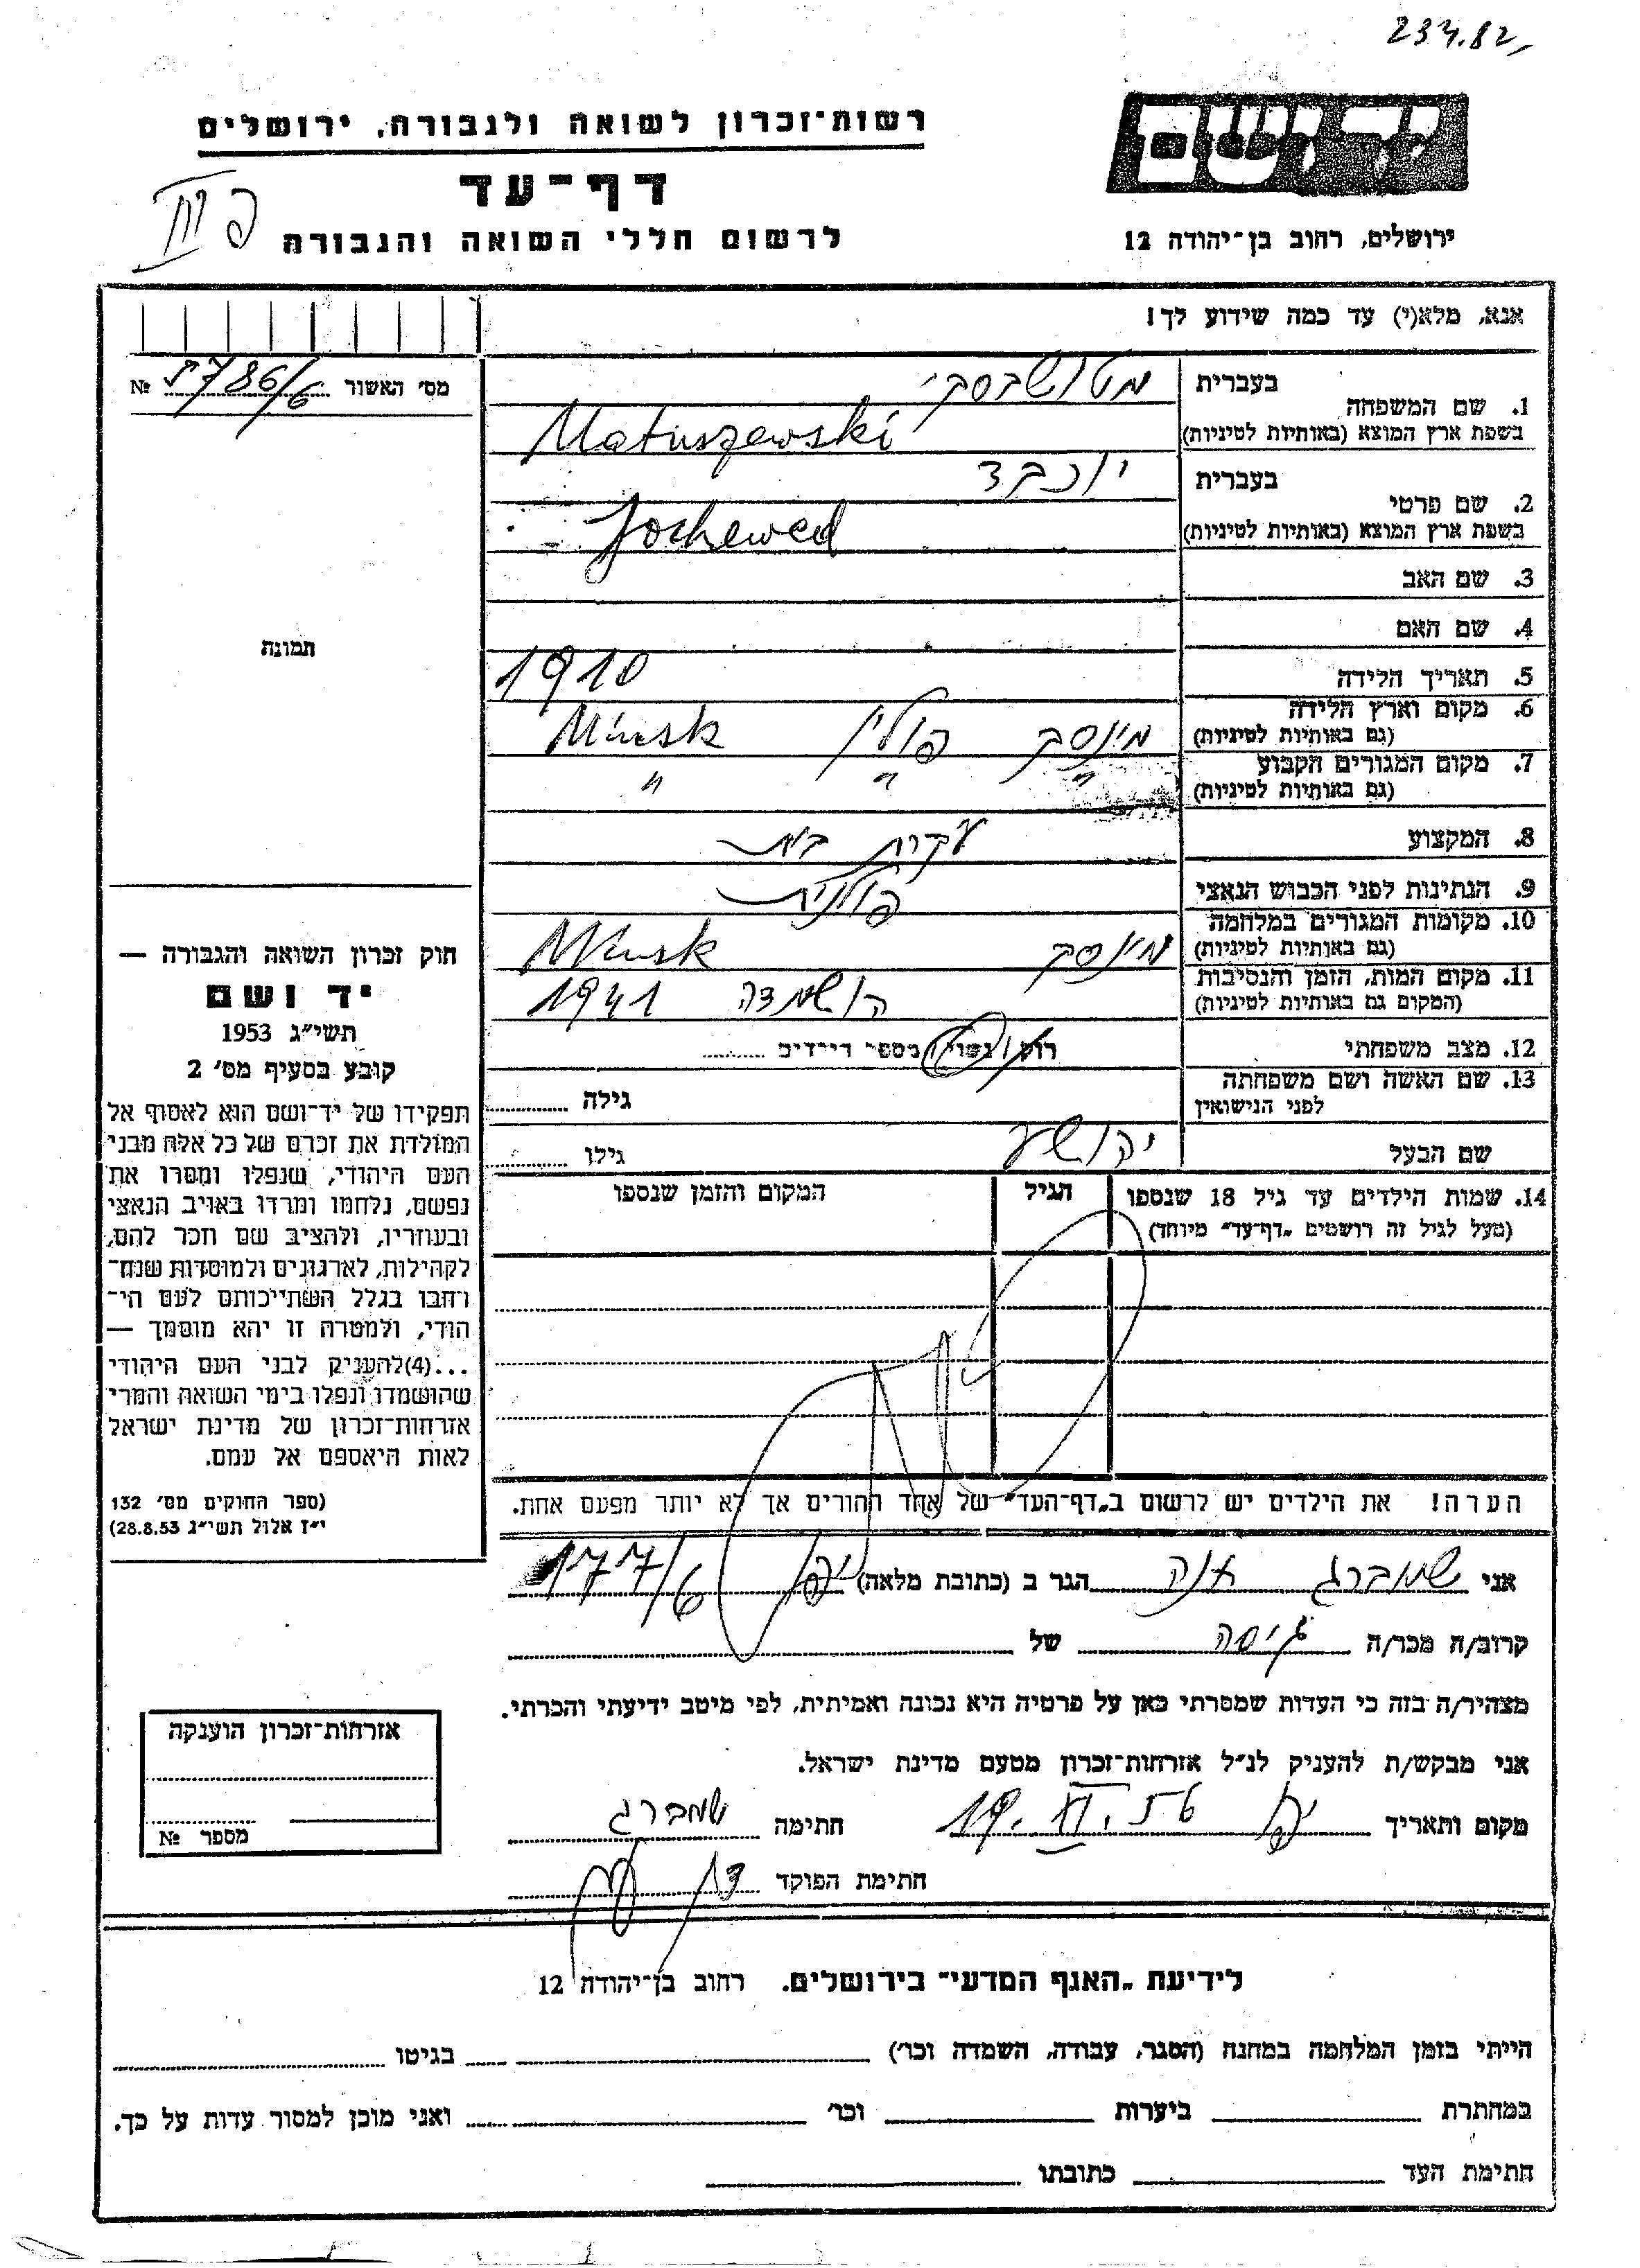 23 4.82
רשות־זכרון לשואה ולגבורה, ירושלים
יד ושם
דף־עד
לרשום חללי השואה והגבורה
ירושלים, רחוב בן־יהודה 12
אנא, מלא(י) עד כמה שידוע לך!
מס׳ האשור 5786/6 №
1. שם המשפחה
בעברית מטושבסקי
בשפת ארץ המוצא (באותיות לטיניות) Matuszewski
2. שם פרטי
בעברית יוכבד
בשפת ארץ המוצא (באותיות לטיניות) Jochewed
3. שם האב
4. שם האם
תמונה
5. תאריך הלידה 1910
6. מקום וארץ הלידה
(גם באותיות לטיניות) מינסק פולין Minsk
7. מקום המגורים הקבוע
(גם באותיות לטיניות) " " "
8. המקצוע עקרת בית
9. הנתינות לפני הכבוש הנאצי פולנית
10. מקומות המגורים במלחמה
(גם באותיות לטיניות) מינסק Minsk
11. מקום המות, הזמן והנסיבות
(המקום גם באותיות לטיניות) הושמדה 1941
12. מצב משפחתי רוק/נשוי/מספר הילדים
13. שם האשה ושם משפחתה
לפני הנישואין גילה
שם הבעל יהושע גילו
14. שמות הילדים עד גיל 18 שנספו הגיל המקום והזמן שנספו
(מעל לגיל זה רושמים „דף־עד” מיוחד)
חוק זכרון השואה והגבורה —
יד ושם
תשי״ג 1953
קובע בסעיף מס׳ 2
תפקידו של יד־ושם הוא לאסוף אל
המולדת את זכרם של כל אלה מבני
העם היהודי, שנפלו ומסרו את
נפשם, נלחמו ומרדו באויב הנאצי
ובעוזריו, ולהציב שם וזכר להם,
לקהילות, לארגונים ולמוסדות שנח־
רחבו בגלל השתייכותם לעם הי־
הודי, ולמטרה זו יהא מוסמך —
...(4)להעניק לבני העם היהודי
שהושמדו ונפלו בימי השואה והמרי
אזרחות־זכרון של מדינת ישראל
לאות היאספם אל עמם.
(ספר החוקים מס׳ 132
י״ז אלול תשי״ג 28.8.53)
הערה! את הילדים יש לרשום ב„דף־העד” של אחד ההורים אך לא יותר מפעם אחת.
אני שמברג אנה הגר ב (כתובת מלאה) יפו 177/6
קרוב/ה מכר/ה גיסה של
מצהיר/ה בזה כי העדות שמסרתי כאן על פרטיה היא נכונה ואמיתית, לפי מיטב ידיעתי והכרתי.
אני מבקש/ת להעניק לנ״ל אזרחות־זכרון מטעם מדינת ישראל.
מקום ותאריך יפו 19. חתימה שמברג
חתימת הפוקד
אזרחות־זכרון הוענקה
מספר №
לידיעת „האגף המדעי” בירושלים. רחוב בן־יהודה 12
הייתי בזמן המלחמה במחנה (הסגר, עבודה, השמדה וכו׳) בגיטו
במחתרת ביערות וכו׳ ואני מוכן למסור עדות על כך.
חתימת העד כתובתו